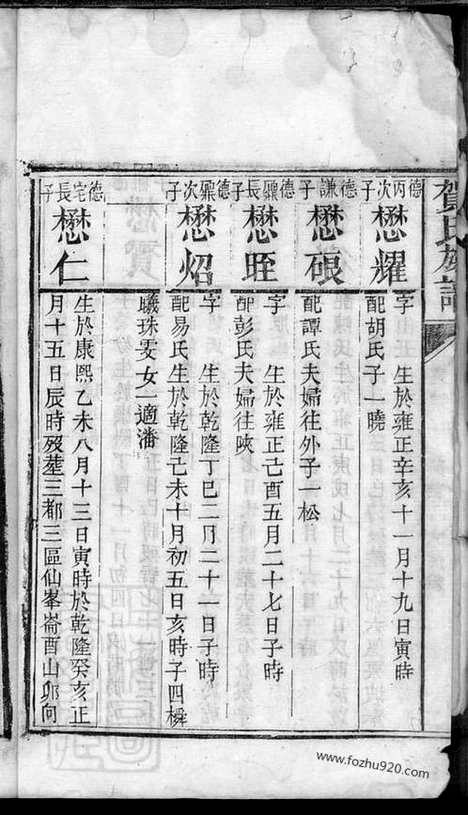 賀氏族譜
德丙次子
懋耀
字 生於雍正辛亥十一月十九日寅時
配胡氏子一曉
德謙子
懋硍
配譚氏夫婦往外子一松
德鼎長子
懋眰
字 生於雍正己酉五月二十七日子時
配彭氏夫婦往陝
德鼎次子
懋炤
字 生於乾隆丁巳二月二十一日子時
配易氏生於乾隆己未十月初五日亥時子四橓
曦珠雯女一適潘
德宅長子
懋仁
生於康熙乙未八月十三日寅時於乾隆癸亥正
月十五日辰時歿塟三都三區仙峯崙酉山卯向
www.fozhu920.com